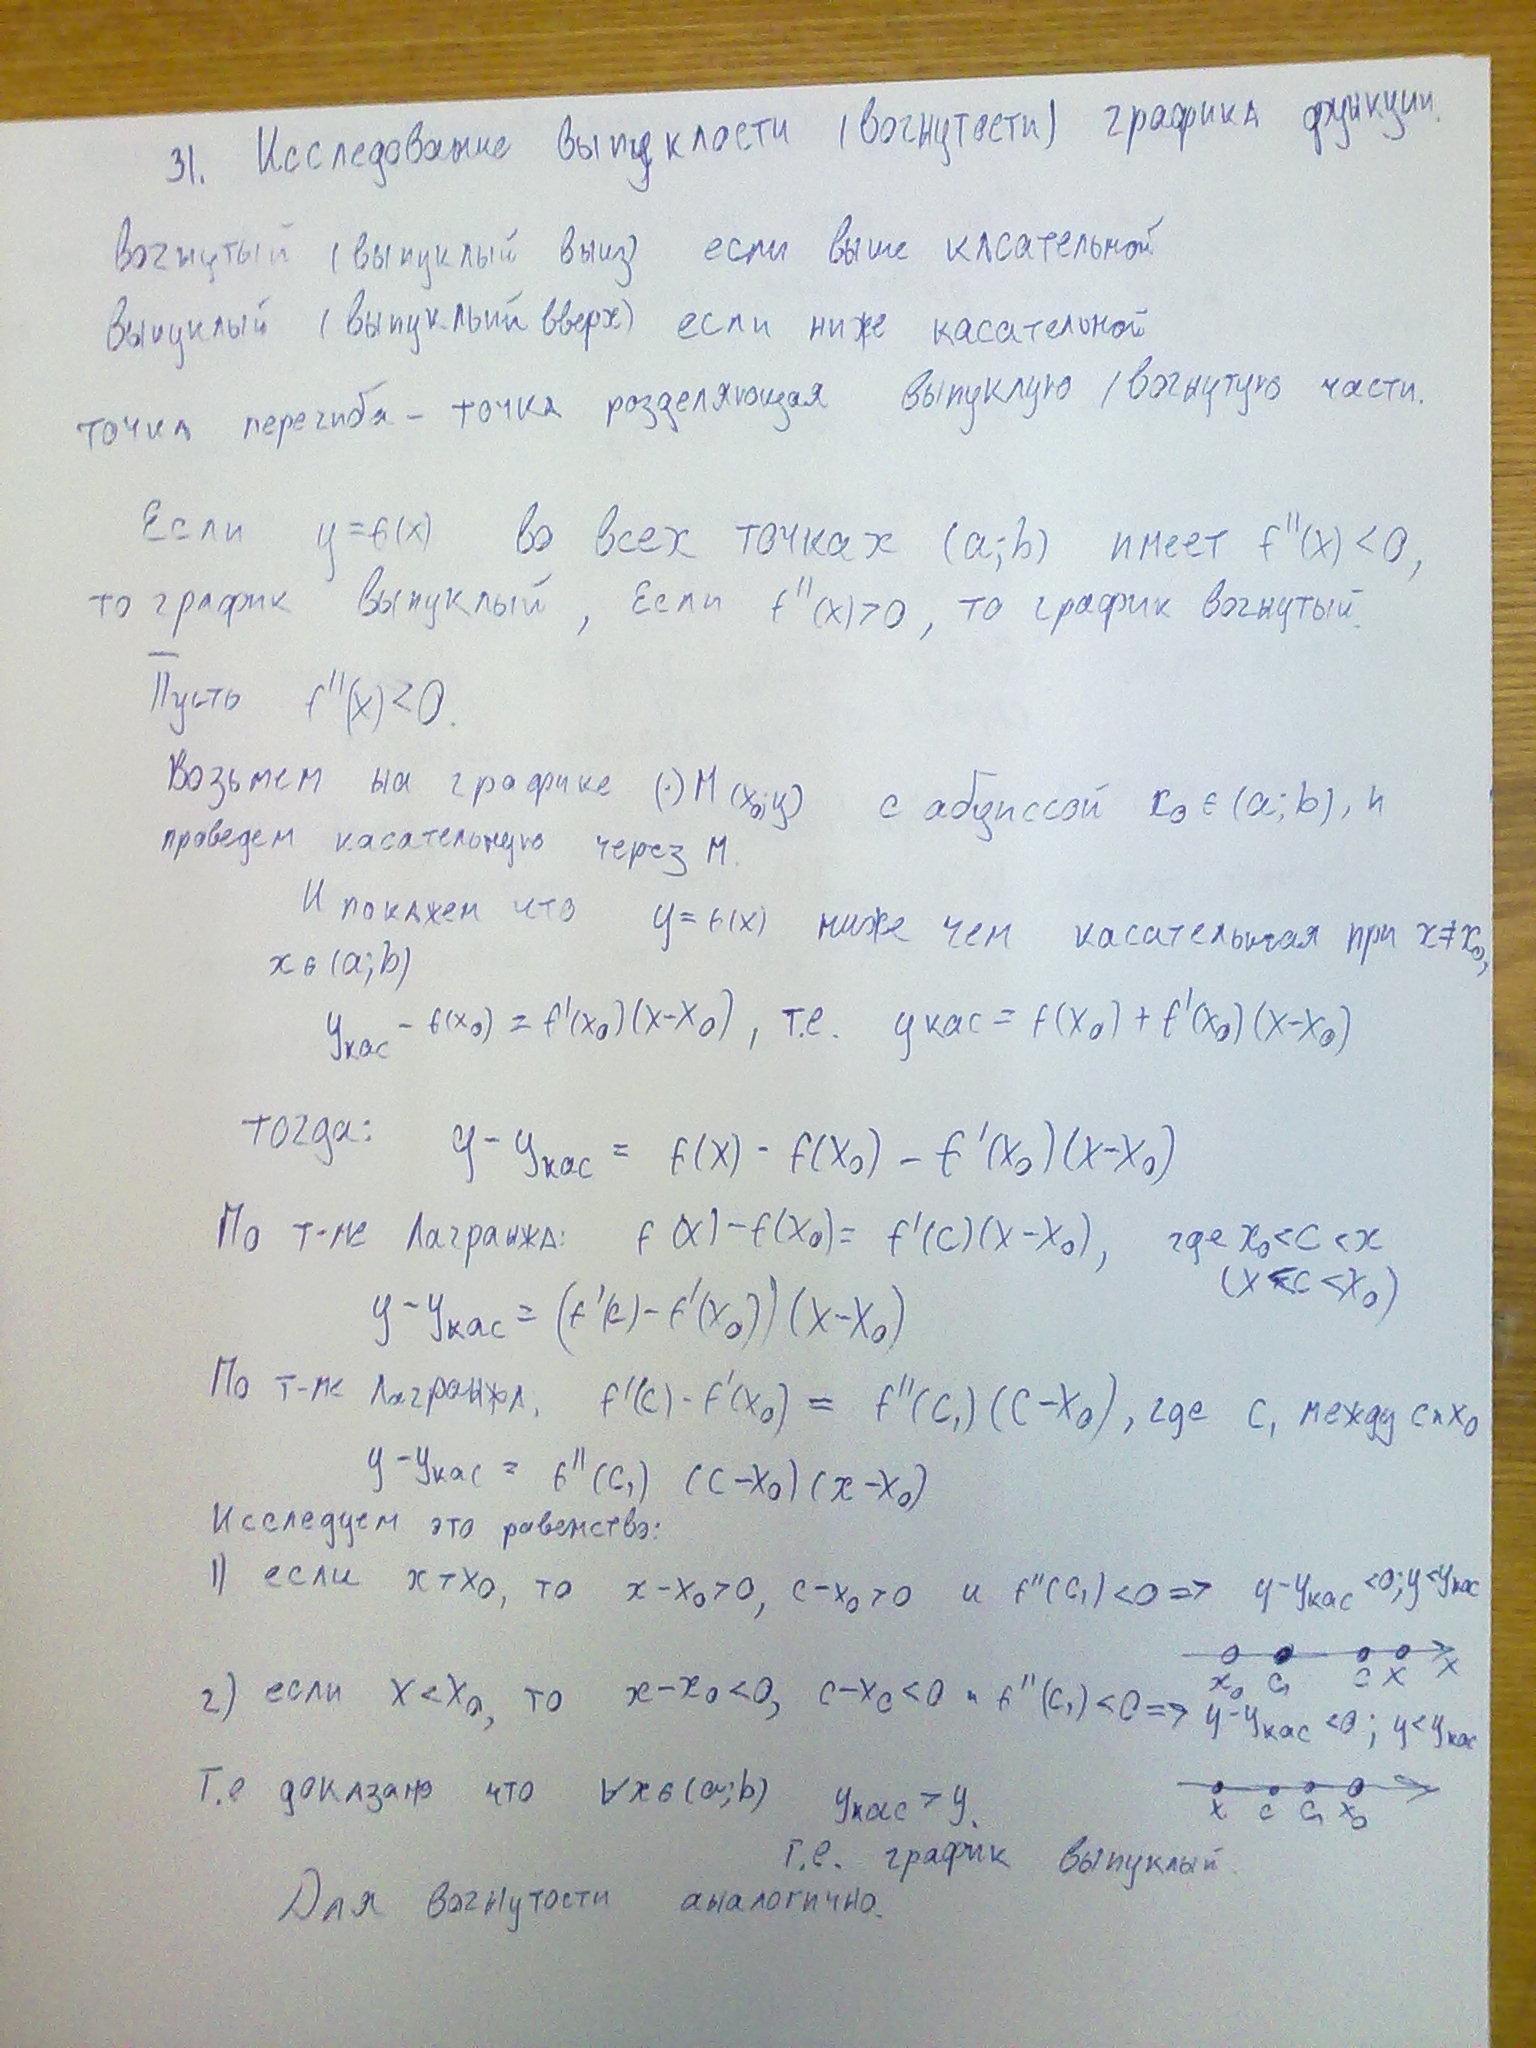 31. Исследование выпуклости (вогнутости) графика функции.
Вогнутый (выпуклый вниз) если выше касательной
Выпуклый (выпуклый вверх) если ниже касательной
точка перегиба - точка разделяющая выпуклую / вогнутую части.
Если y=f(x) во всех точках (a;b) имеет f''(x)<0,
то график выпуклый, Если f''(x)>0, то график вогнутый.
Пусть f''(x)<0.
Возьмем на графике (·) M (x₀;y) с абциссой x₀∈(a;b), и
проведем касательную через M.
И покажем что y=f(x) ниже чем касательная при x≠x₀,
x∈(a;b)
yкас - f(x₀) = f'(x₀)(x-x₀), т.е. yкас = f(x₀) + f'(x₀)(x-x₀)
тогда: y - yкас = f(x) - f(x₀) - f'(x₀)(x-x₀)
По т-ме Лагранжа: f(x) - f(x₀) = f'(c)(x-x₀), где x₀<c<x
(x<c<x₀)
y - yкас = (f'(c) - f'(x₀))(x-x₀)
По т-ме Лагранжа, f'(c) - f'(x₀) = f''(c₁)(c-x₀), где c₁ между c и x₀
y - yкас = f''(c₁) (c-x₀)(x-x₀)
Исследуем это равенство:
1) если x>x₀, то x-x₀>0, c-x₀>0 и f''(c₁)<0 => y-yкас<0; y<yкас
x₀ c₁ c x x
2) если x<x₀, то x-x₀<0, c-x₀<0 и f''(c₁)<0 => y-yкас<0; y<yкас
Т.е доказано что ∀x∈(a;b) yкас > y.
x c c₁ x₀
т.е. график выпуклый.
Для вогнутости аналогично.